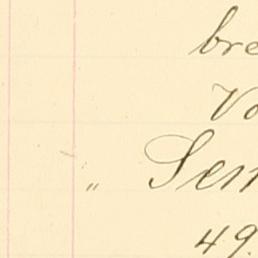 bre
Vo
" Sem
49.